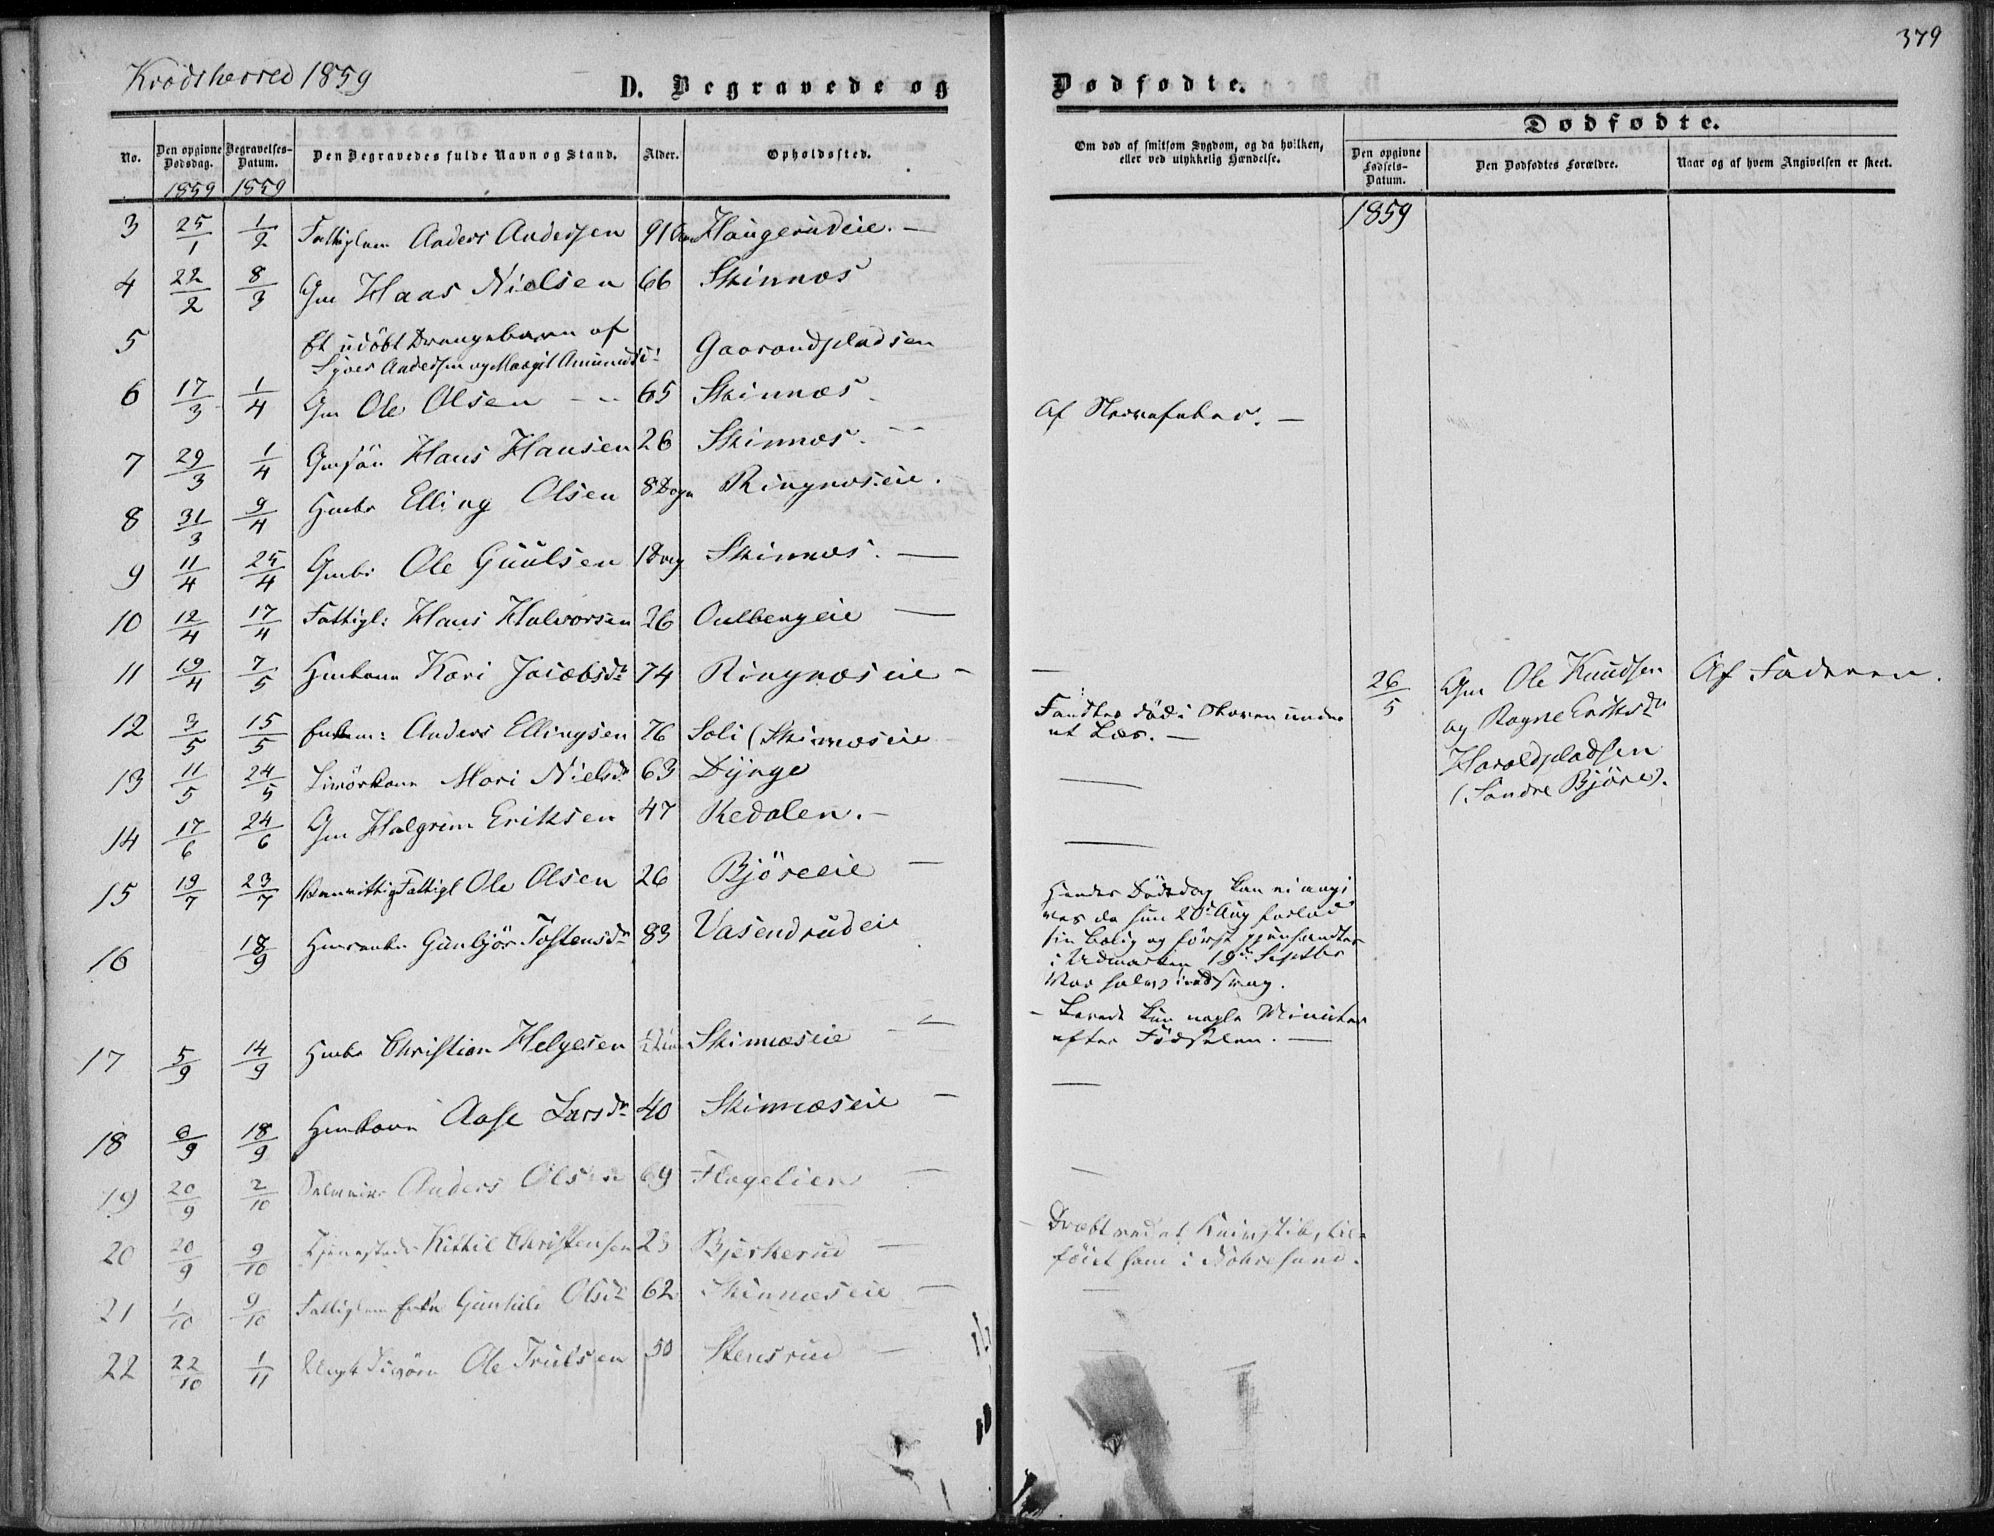 379
Krødsherred 1859
D. Begravede og Dødfødte.
No.
Den opgivne Dødsdag.
Begravelses-Datum.
Den Begravedes fulde Navn og Stand.
Alder.
Opholdssted.
Om død af smitsom Sygdom, og da hvilken, eller ved ulykkelig Hændelse.
Dødfødte.
Den opgivne Fødsels-Datum.
Den Dødfødtes Forældre.
Naar og af hvem Angivelsen er skeet.
1859 1859
1859
3 25/1 1/2 Fattiglem Anders Andersen 91 Haugerudeie. —
4 22/2 8/3 Gm Haas Nielsen 66 Skinnes
5 Et udöbt Drengebarn af
Syver Andersen og Margit Amundsd: Gaarandpladsen
6 17/3 1/4 Gm Ole Olsen 65 Skinnæs. Af Nervefeber. —
7 29/3 1/4 Gmsön Hans Hansen 26 Skinnes.
8 31/3 9/4 Hmbr Elling Olsen 8 Dage Ringnæseie.
9 11/4 25/4 Gmbr Ole Guulsen 1 Dag Skinnes. —
10 12/4 17/4 Fattigl: Hans Halvorsen 26 Oulbergeie —
11 19/4 7/5 Hmkone Kari Jacobsdr 74 Ringnæseie — —
12 3/5 15/5 Enkem: Anders Ellingsen 76 Soli (Skinnæseie Fandtes död i Skoven under
et Læs. —
26/5 Gm Ole Knudsen Af Faderen.
og Ragne Eriksdr
Haraldpladsen
(Söndre Björe).
13 11/5 24/5 Livörkone Mari Nielsdr 63 Dynge —
14 17/6 24/6 Gm Halgrim Eriksen 47 Redalen. — —
15 19/7 23/7 Vanvittig Fattigl Ole Olsen 26 Björeeie —
16 18/9 Hmenke Gunbjör Tostensdr 83 Vasendrudeie
Hendes Dödsdag kan ei angi
ves da hun 20de Aug forlod
sin Bolig og först gjenfandtes
i Udmarken 19de Septbr
Var halvs indsvag.
17 5/9 14/9 Hmbr Christian Helgesen Skinnæseie —
— Levede kun nogle Minuter
efter Födselen. —
18 6/9 18/9 Hmkone Aase Larsdr 40 Skinnæseie — —
19 20/9 2/10 Anders Olsen 69 Flagelien — —
20 20/9 9/10 Kittil Christensen 23 Bjerkerud —
Dræbt ved et Knivstik, til-
föiet ham i
21 1/10 9/10 Fattiglem Enke Gunhild Olsdr 62 Skinnæseie —
22 22/10 1/11 Ole Trulsen 50 Stensrud —